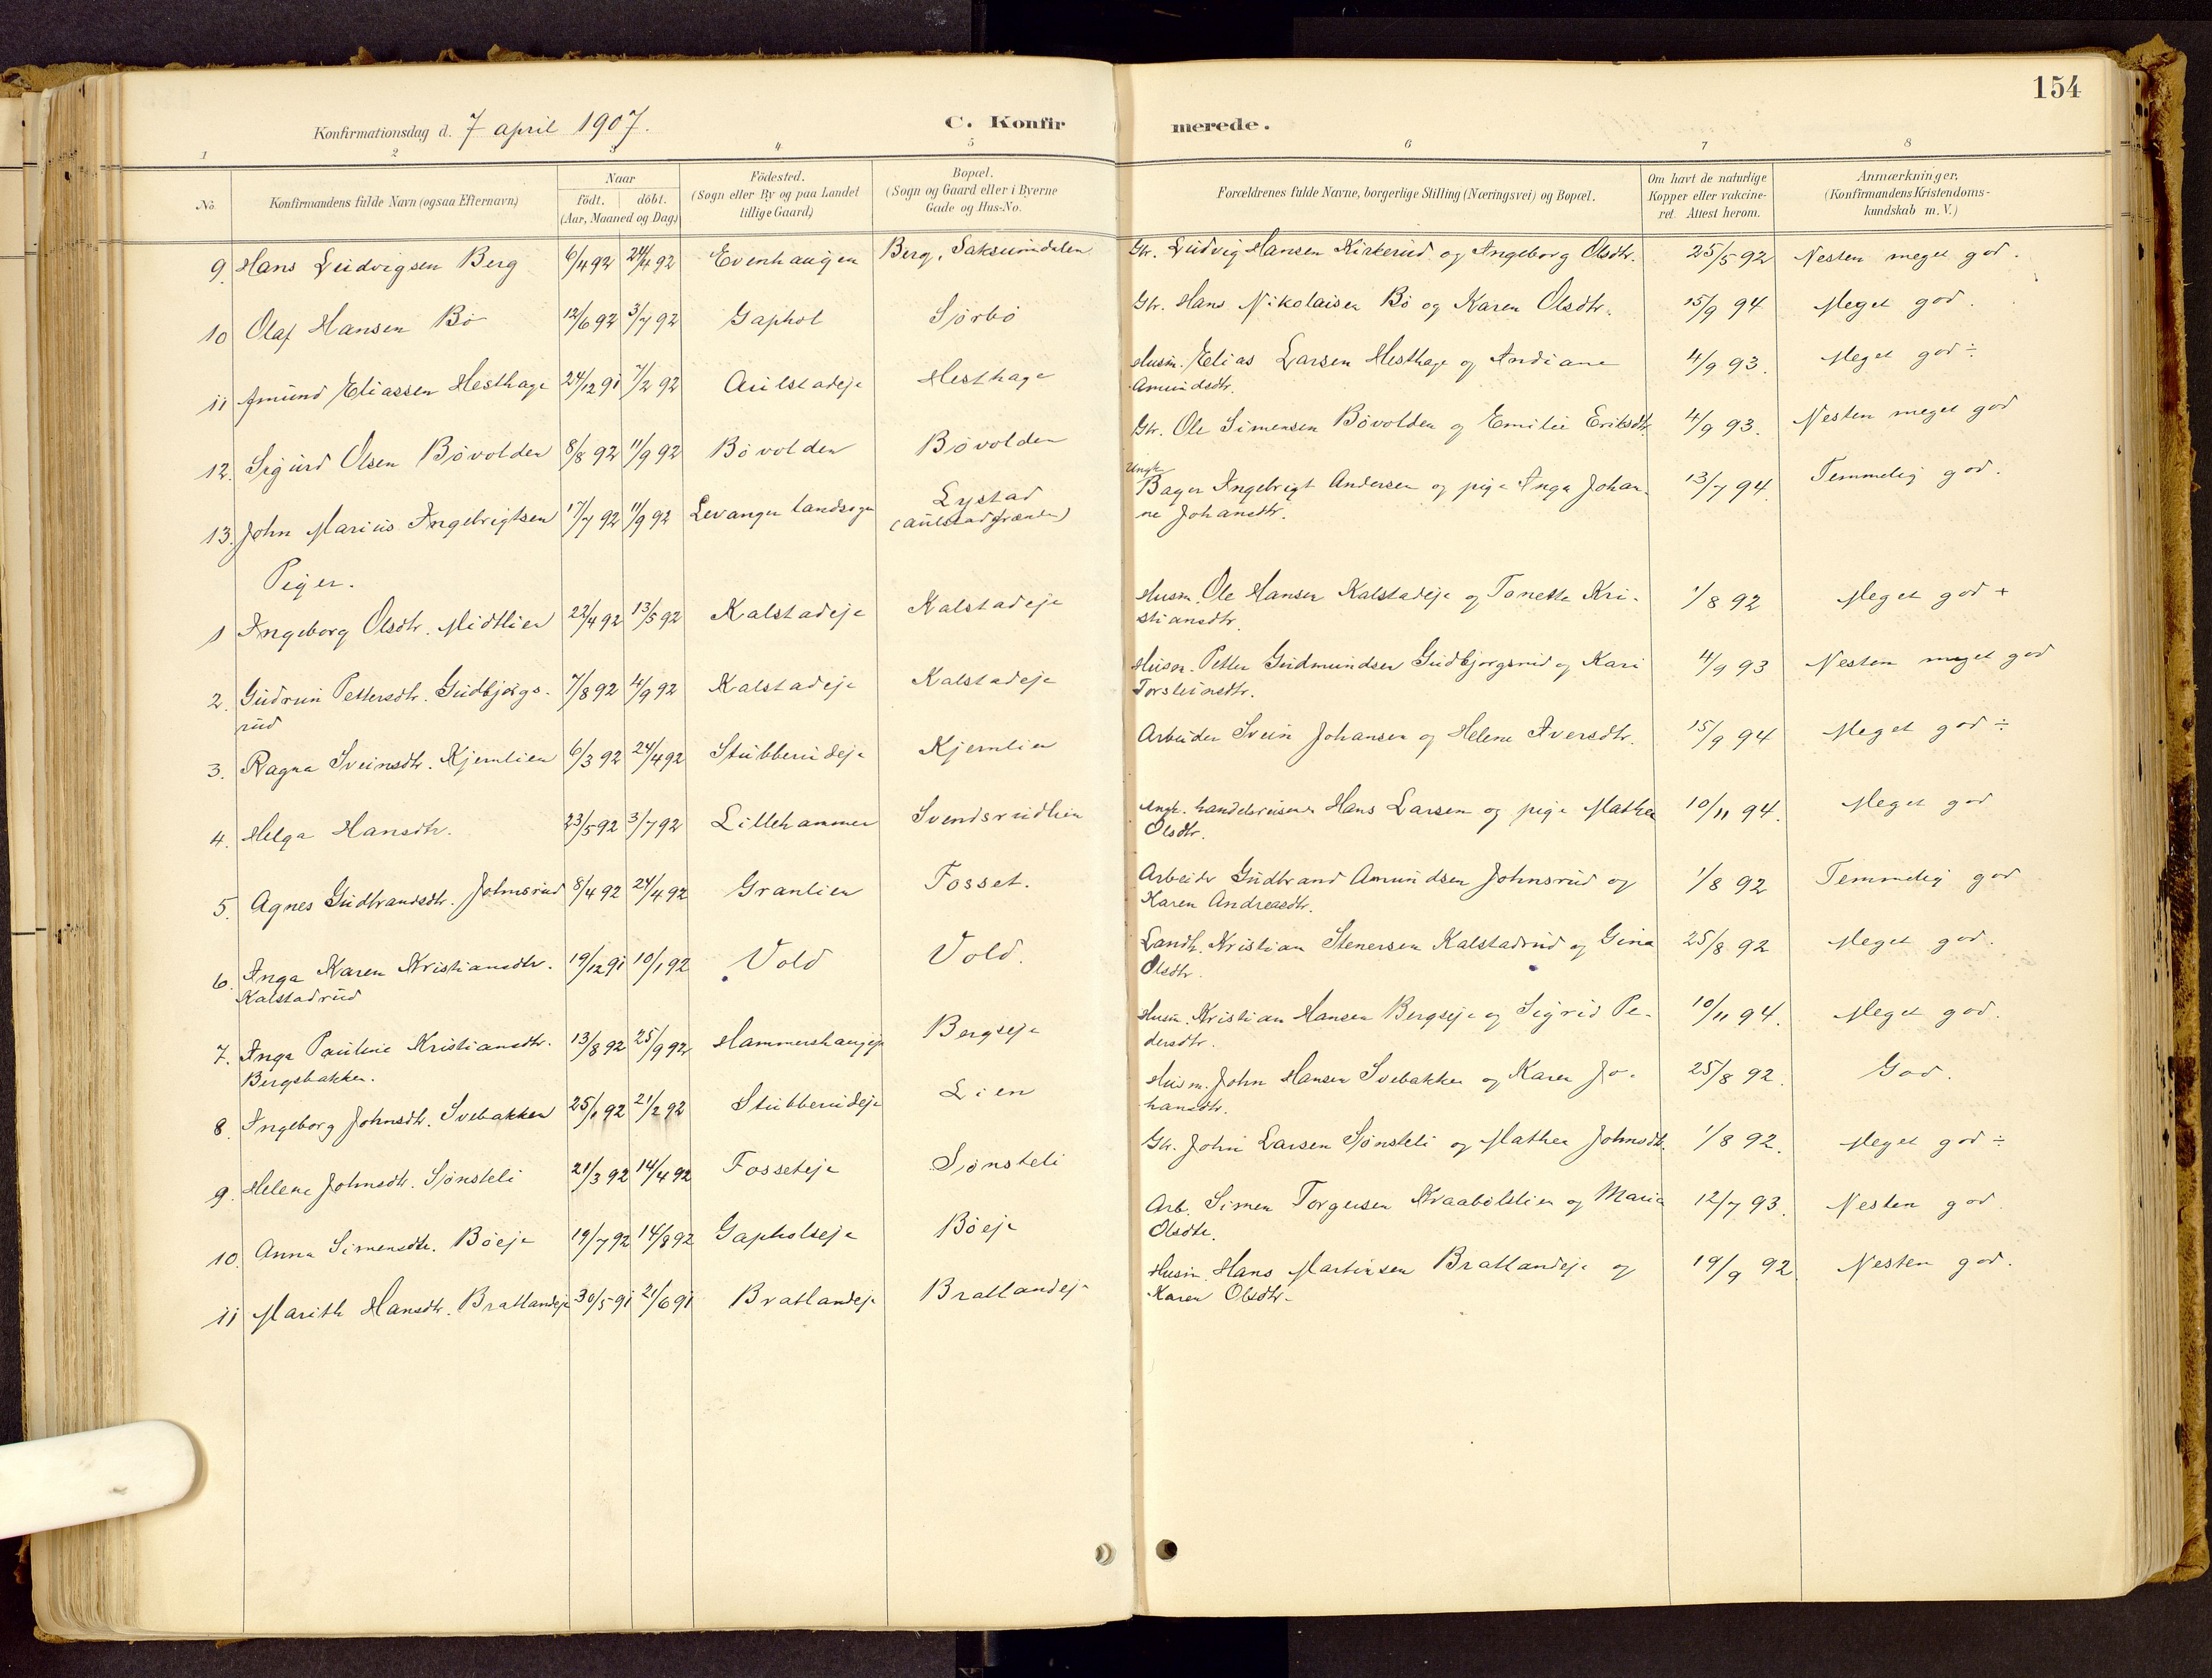 154
Konfirmationsdag d. 7 april 1907. C. Konfirmerede.
1 2 3 4 5 6 7 8
No. Konfirmandens fulde Navn (ogsaa Efternavn) Naar födt. döbt. (Aar, Maaned og Dag) Födested. (Sogn eller By og paa Landet tillige Gaard) Bopæl. (Sogn og Gaard eller i Byerne Gade og Hus-No. Forældrenes fulde Navne, borgerlige Stilling (Næringsvei) og Bopæl. Om havt de naturlige Kopper eller vakcineret. Attest herom. Anmærkninger. (Konfirmandens Kristendomskundskab m. V.)
9. Hans Ludvigsen Berg 6/4 92 24/4 92 Evenhaugen Berg, Saksumdalen Gbr. Ludvig Hansen Kirkerud og Ingeborg Olsdtr. 25/5 92 Nesten meget god.
10 Olaf Hansen Bö 12/6 92 3/7 92 Gaphol Sørbö Gbr. Hans Nikolaisen Bö og Karen Olsdtr. 15/9 94 Meget god.
11 Amund Eliassen Hesthage 24/12 91 7/2 92 Aulstadeje Hesthage Husm. Elias Larsen Hesthage og Andiane 4/9 93. Meget god ÷
Amundsdtr.
12. Sigurd Olsen Bövolden 8/8 92 11/9 92 Bövolden Bövolden Gbr. Ole Simensen Bövolden og Emilie Eriksdtr. 4/9 93. Nesten meget god
13. John Marius Ingebrigtsen 17/7 92 11/9 92 Levanger landsogn Lystad Ungk. Bager Ingebrigt Andersen og pige Inga Johan- 13/7 94. Temmelig god.
(Aulstadgrænden) ne Johansdtr.
Piger.
1 Ingeborg Olsdtr. Midtlien 22/4 92 13/5 92 Kalstadeje Kalstadeje Husm. Ole Hansen Kalstadeje og Tonette Kri- 1/8 92 Meget god +
stiansdtr.
2. Gudrun Pettersdtr. Gudbjørgs- 7/8 92 4/9 92 Kalstadeje Kalstadeje Husm. Petter Gudmundsen Gudbjørgsrud og Kari 4/9 93 Nesten meget god
rud Torsteinsdtr.
3. Ragna Sveinsdtr. Kjernlien 6/3 92 24/4 92 Stubberudeje Kjernlien Arbeider Svein Johansen og Helene Iversdtr. 15/9 94 Meget god ÷
4. Helga Hansdtr. 23/5 92 3/7 92 Lillehammer Svendsrudlien Ungk. handelsreisende Hans Larsen og pige Mathea 10/11 94. Meget god
Olsdtr.
5. Agnes Gudbrandsdtr. Johnsrud 8/4 92 24/4 92 Granlien Fosset. Arbeider Gudbrand Amundsen Johnsrud og 1/8 92 Temmelig god
Karen Andreasdtr.
6. Inga Karen Kristiansdtr. 19/12 91 10/1 92 Vold Vold. Landh. Kristian Stenersen Kalstadrud og Gina 25/8 92 Meget god.
Kalstadrud Olsdtr.
7. Inga Pauline Kristiansdtr. 13/8 92 25/9 92 Hammershaugeje Bergseje Husm. Kristian Hansen Bergseje og Sigrid Pe- 10/11 94. Meget god.
Bergsbakken. dersdtr.
8. Ingeborg Johnsdtr. Svebakken 25/1 92 21/2 92 Stubberudeje Lien Husm. John Hansen Svebakken og Karen Jo- 25/8 92. God.
hansdtr.
9. Helene Johnsdtr. Sjønsteli 21/3 92 14/4 92 Fosseteje Sjønsteli Gbr. John Larsen Sjønsteli og Mathea Johnsdtr. 1/8 92. Meget god ÷
10. Anna Simensdtr. Böeje 19/7 92 14/8 92 Gapholseje Böeje Arb. Simen Torgersen Kraabölslien og Maria 12/7 93. Nesten god
Olsdtr.
11 Marith Hansdtr. Bratlandeje 30/5 91 21/6 91 Bratlandeje Bratlandeje Husm. Hans Martinsen Bratlandeje og 19/9 92. Nesten god.
Karen Olsdtr.